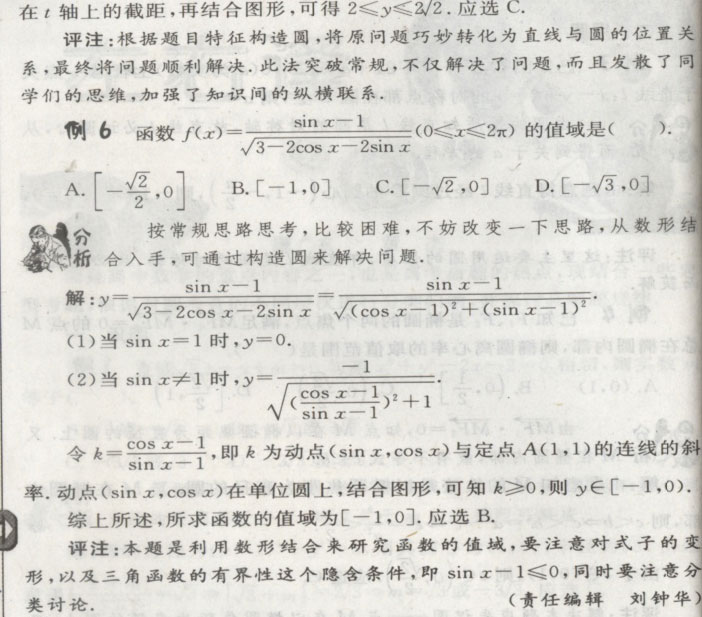 在 t 轴上的截距,再结合图形,可得 2≤y≤2√2. 应选 C.
评注:根据题目特征构造圆,将原问题巧妙转化为直线与圆的位置关
系,最终将问题顺利解决.此法突破常规,不仅解决了问题,而且发散了同
学们的思维,加强了知识间的纵横联系.
例 6 函数 f(x)=(sin x−1)/√(3−2cos x−2sin x)(0≤x≤2π) 的值域是( ).
A. [−√2/2,0] B. [−1,0] C. [−√2,0] D. [−√3,0]
分析 按常规思路思考,比较困难,不妨改变一下思路,从数形结
合入手,可通过构造圆来解决问题.
解:y=(sin x−1)/√(3−2cos x−2sin x)=(sin x−1)/√((cos x−1)²+(sin x−1)²).
(1)当 sin x=1 时,y=0.
(2)当 sin x≠1 时,y=−1/√(((cos x−1)/(sin x−1))²+1).
令 k=(cos x−1)/(sin x−1),即 k 为动点(sin x,cos x)与定点 A(1,1)的连线的斜
率.动点(sin x,cos x)在单位圆上,结合图形,可知 k≥0,则 y∈[−1,0).
综上所述,所求函数的值域为[−1,0].应选 B.
评注:本题是利用数形结合来研究函数的值域,要注意对式子的变
形,以及三角函数的有界性这个隐含条件,即 sin x−1≤0,同时要注意分
类讨论.
(责任编辑 刘钟华)